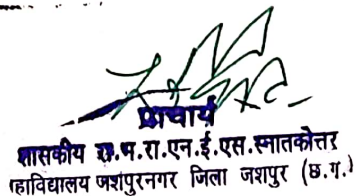 प्राचार्य
शासकीय रा.भ.रा.एन.ई.एस.स्नातकोत्तर
हाविद्यालय जशपुरनगर जिला जशपुर (छ.ग.)